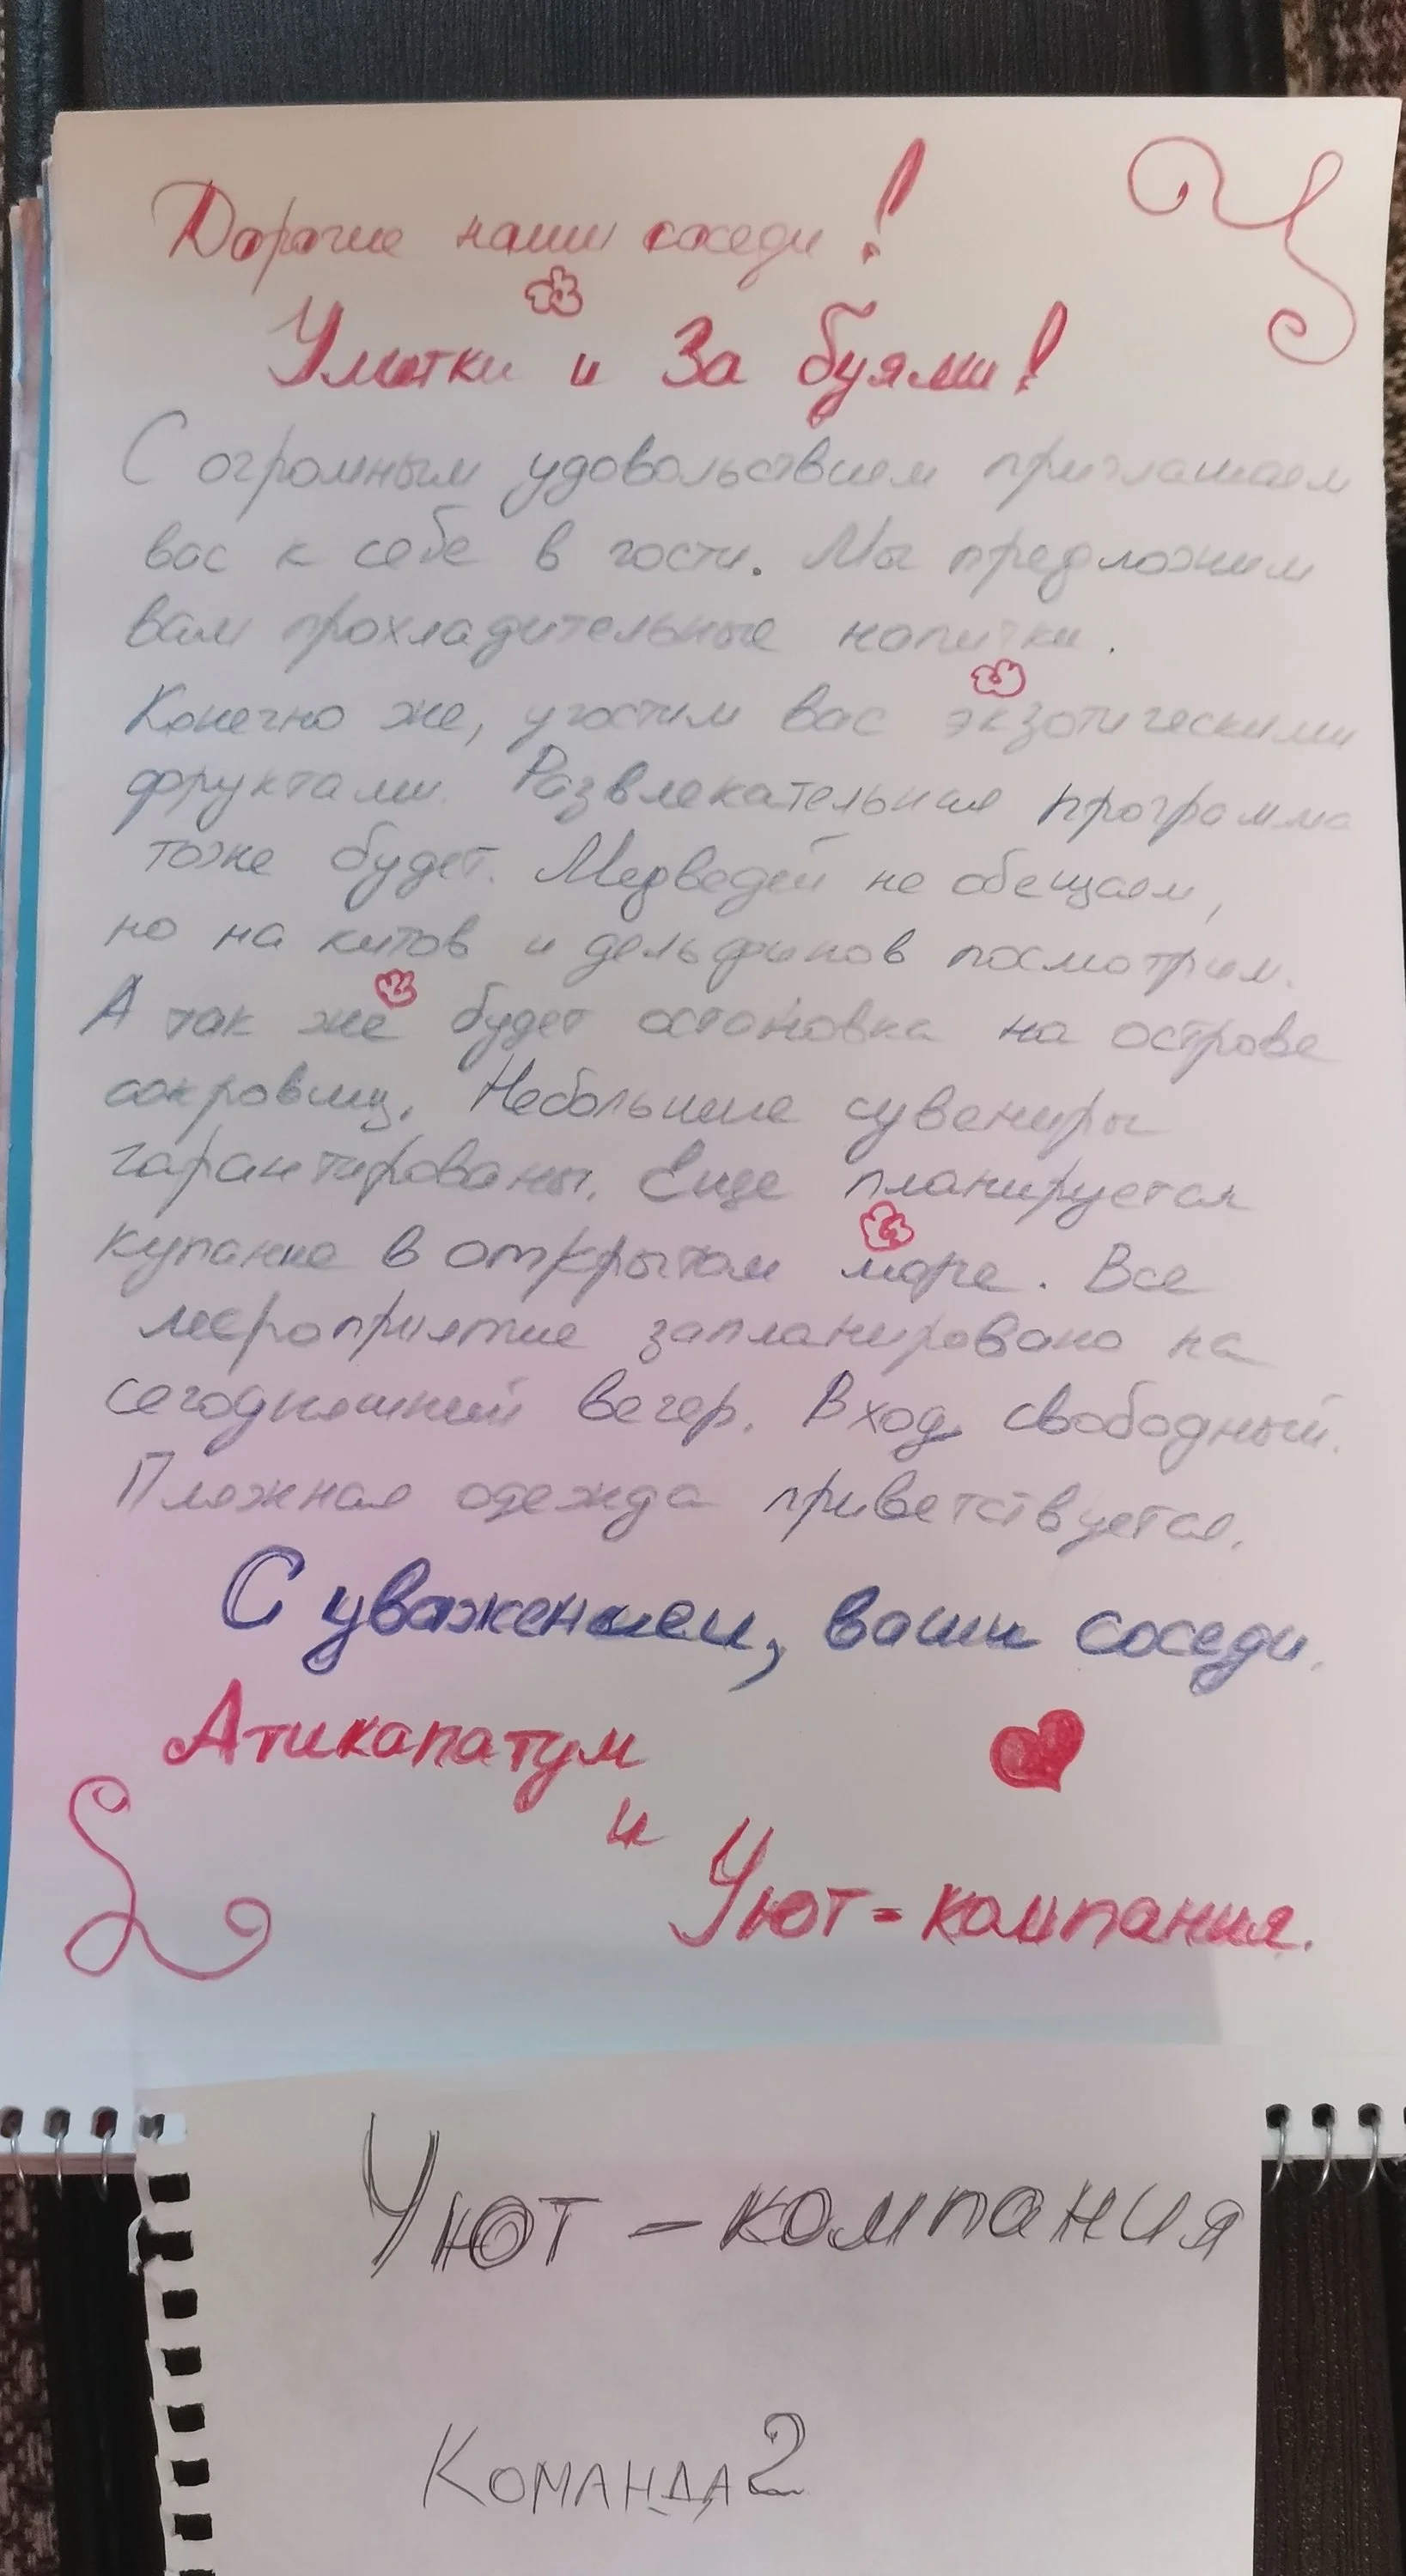 Дорогие наши соседи!
Улитки и За буями!
С огромным удовольствием приглашаем
вас к себе в гости. Мы предложим
вам прохладительные напитки.
Конечно же, угостим вас экзотическими
фруктами. Развлекательная программа
тоже будет. Медведей не обещаем,
но на китов и дельфинов посмотрим.
А так же будет остановка на острове
сокровищ. Небольшие сувениры
гарантированы. Еще планируется
купание в открытом море. Все
мероприятие запланировано на
сегодняшний вечер. Вход свободный.
Пляжная одежда приветствуется.
С уважением, ваши соседи.
Атикапатум
и
Уют-компания.
Уют-компания
Команда 2